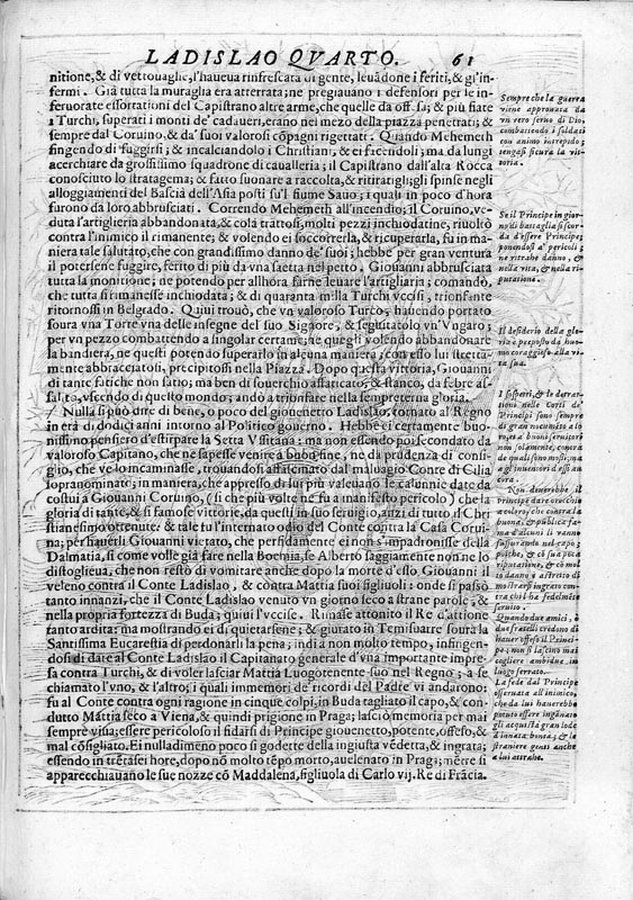 LADISLAO QVARTO. 61
nitione, & di vettouaglie, l'haueua rinfrescata di gente, leuadone i feriti, & gl'in-
fermi. Già tutta la muraglia era atterrata; ne pregiauano i defensori per le in-
feruorate essortationi del Capistrano altre arme, che quelle da off. sa; & più fiate
i Turchi, superati i monti de' cadaueri, erano nel mezo della piazza penetrati; &
sempre dal Coruino, & da' suoi valorosi cōpagni rigettati. Quando Mehemeth
fingendo di fuggirsi; & incalciandolo i Christiani, & ei facendoli; ma da lungi
acerchiare da grossissimo squadrone di caualleria; il Capistrano dall'alta Rocca
conosciuto lo stratagema; & fatto suonare a raccolta, & ritiratigli; gli spinse negli
alloggiamenti del Bascià dell'Asia posti su'l fiume Sauo; i quali in poco d'hora
furono da loro abbrusciati. Correndo Mehemeth all'incendio; il Coruino, ve-
duta l'artigliaria abbandonata, & colà trattosi, molti pezzi inchiodatine, riuoltò
contra l'inimico il rimanente; & volendo ei soccorrerla, & ricuperarla, fu in ma-
niera tale salutato, che con grandissimo danno de' suoi; hebbe per gran ventura
il potersene fuggire, ferito di più da vna saetta nel petto. Giouanni abbrusciata
tutta la monitione; ne potendo per allhora farne leuare l'artigliaria; comandò,
che tutta si rimanesse inchiodata; & di quaranta milla Turchi vccisi, trionfante
ritornossi in Belgrado. Quiui trouò, che vn valoroso Turco, hauendo portato
soura vna Torre vna delle insegne del suo Signore, & seguitatolo vn'Vngaro;
per vn pezzo combattendo a singolar certame; ne quegli volendo abbandonare
la bandiera, ne questi potendo superarlo in alcuna maniera; con esso lui stretta-
mente abbracciatosi, precipitossi nella Piazza. Dopo questa vittoria, Giouanni
di tante fatiche non satio; ma ben di souerchio affaticato, & stanco, da febre as-
salito, vscendo di questo mondo; andò a trionfare nella sempiterna gloria.
Nulla si può dire di bene, o poco del giouenetto Ladislao, tornato al Regno
in età di dodici anni intorno al Politico gouerno. Hebbe ei certamente buo-
nissimo pensiero d'estirpare la Setta Vssitana: ma non essendo poi secondato da
valoroso Capitano, che ne sapesse venire a buon fine, ne da prudenza di consi-
glio, che ve lo incaminasse, trouandosi affascinato dal maluagio Conte di Cilia
sopranominato; in maniera, che appresso di lui più valeuano le calunnie date da
costui a Giouanni Coruino, (si che più volte ne fu a manifesto pericolo) che la
gloria di tante, & si famose vittorie, da questi in suo seruigio, anzi di tutto il Chri
stianesimo ottenute: & tale fu l'internato odio del Conte contra la Casa Corui-
na; per hauerli Giouanni vietato, che perfidamente ei non s'impadronisse della
Dalmatia, si come volle già fare nella Boemia, se Alberto saggiamente non ne lo
distoglieua, che non restò di vomitare anche dopo la morte d'esso Giouanni il
veleno contra il Conte Ladislao, & contra Mattia suoi figliuoli: onde si passò
tanto innanzi, che il Conte Ladislao venuto vn giorno seco a strane parole, &
nella propria fortezza di Buda; quiui l'vccise. Rimase attonito il Re d'attione
tanto ardita: ma mostrando ei di quietarsene; & giurato in Temisuarre soura la
Santissima Eucarestia di perdonarli la pena; indi a non molto tempo, infingen-
dosi di dare al Conte Ladislao il Capitanato generale d'vna importante impre-
sa contra Turchi, & di voler lasciar Mattia Luogotenente suo nel Regno; a se
chiamato l'vno, & l'altro; i quali immemori de' ricordi del Padre vi andarono:
fu al Conte contra ogni ragione in cinque colpi, in Buda tagliato il capo, & con-
dutto Mattia seco a Viena, & quindi prigione in Praga; lasciò memoria per mai
sempre viua; essere pericoloso il fidarsi di Principe giouenetto, potente, offeso, &
mal cōsigliato. Ei nulladimeno poco si godette della ingiusta vēdetta, & ingrata;
essendo in trētasei hore, dopo nō molto tēpo morto, auelenato in Praga; mētre si
apparecchiauano le sue nozze cō Maddalena, figliuola di Carlo vij. Re di Frācia.
Sempre che la guerra
viene approuata da
vn vero seruo di Dio,
combattendo i soldati
con animo intrepido;
tengasi sicura la vit-
toria.
Se il Principe in gior-
no di battaglia si scor-
da d'essere Principe;
ponendosi a' pericoli
ne ritrahe danno, &
nella vita, & nella ri-
putatione.
Il desiderio della glo-
ria è preposto da huo-
mo coraggioso alla vi-
ta sua.
I sospetti, & le detrat-
tioni nelle Corti de'
Principi sono sempre
di gran nocumento a lo-
ro, et a' buoni seruitori
non solamente, contra
de' quali sono mossi; ma
a gl'inuentori d'essi an
cora.
Non douerebbe il
Principe dare orecchio
a coloro, che contra la
buona, & publica fa-
ma d'alcuni li vanno
sussurando nel capo;
poiche, & cō sua poca
riputatione, & cō mol
to danno è astretto di
mostrarsi ingrato con-
tra chi l'ha fedelmēte
seruito.
Quando due amici, o
due fratelli credono di
hauer offeso il Princi-
pe; non si lascino mai
cogliere ambidue in
luogo serrato.
La fede dal Principe
osseruata all'inimico,
che da lui hauerebbe
potuto essere ingānato
gli acquista gran lode
d'innata bontà; & le
straniere genti anche
a lui attrahe.